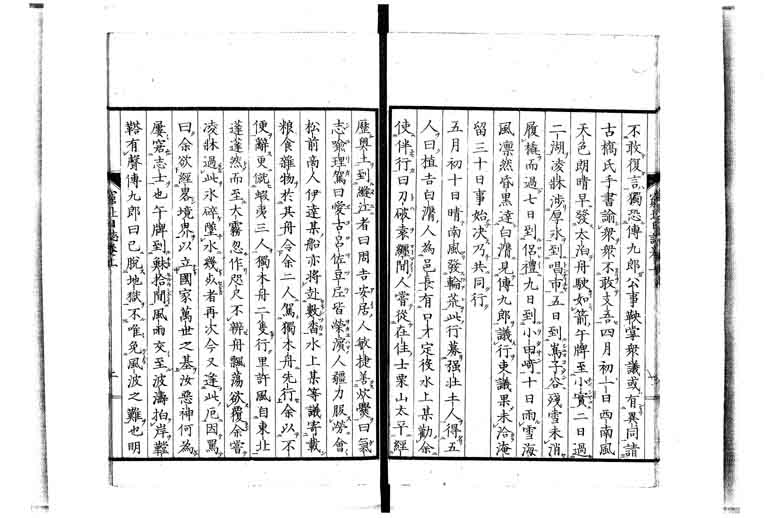 不敢復言獨恐傳九郎公事鞅掌衆議或有異同請
古橋氏手書諭衆衆不敢支吾四月初一日西南風
天色朗晴早發太泊舟駛如箭午牌至小實二日過
二湖凌牀涉厚氷到唱市五日到蔦子谷殘雪未消
履橇而過七日到侶禮九日到小田崎十日雨雪海
風凛然昏黑達白濱見傳九郎議行東議果未洽淹
留三十日事始决乃共同行
五月初十日晴南風發輪荒此行募强壯土人得五
人曰植吉白濱人為邑長有口才定後水上某勸余
使伴行曰刀破袁纒間人嘗從在住士栗山太平經
歷奥土到縫江者曰周吉安居人敏捷善炊爨曰氣
志喩理駕曰愛古呂佐豆邑皆榮濱人彊力服勞會
松前南人伊達某船亦將赴數香水上某等議寄載
粮食雜物於其舟令余二人駕獨木舟先行余以不
便辭更僦蝦夷三人獨木舟二隻行里許風自東北
蓬蓬然而至大霧忽作咫尺不辨舟飄蕩欲覆余嘗
凌牀過此氷碎墜水幾歿者再次今又逢此厄因罵
曰余欲經畧境界以立國家萬世之基汝惡神何為
屢窘志士也午牌到蘇拾間風雨交至波濤拍岸鞺
鞳有聲傳九郎曰已脱地獄不唯免風波之難也明